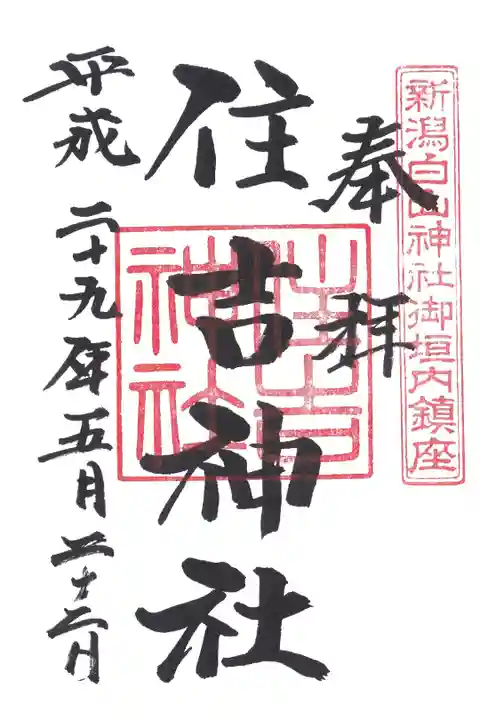 新潟白山神社御垣内鎮座
奉拝
住吉神社
住吉
神社
平成二十九年五月二十二日